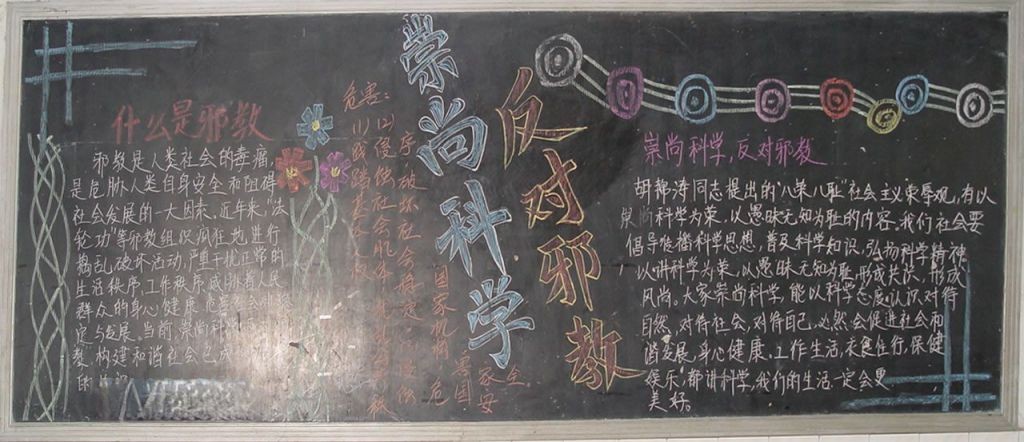 什么是邪教
邪教是人类社会的毒瘤,
是危胁人类自身安全和阻碍
社会发展的一大因素,近年来,"法
轮功"等邪教组织疯狂地进行
捣乱破坏活动,严重干扰正常的
生活秩序,工作秩序,威胁着人民
群众的身心健康
定与发展,当前,崇尚科学
构建和谐社会已成
的
危害:
(1)践踏基本人权
(2)侵蚀社会肌体
序破坏社会稳定
国家机构
崇尚科学
反对邪教
崇尚科学,反对邪教
胡锦涛同志提出的"八荣八耻"社会主义荣辱观,有以
崇尚科学为荣,以愚昧无知为耻的内容,我们社会要
倡导传播科学思想,普及科学知识,弘扬科学精神
以讲科学为荣,以愚昧无知为耻,形成共识,形成
风尚。大家崇尚科学,能以科学态度认识对待
自然,对待社会,对待自己,必然会促进社会和
谐发展,身心健康,工作生活,衣食住行,保健
娱乐,都讲科学,我们的生活一定会更
美好。